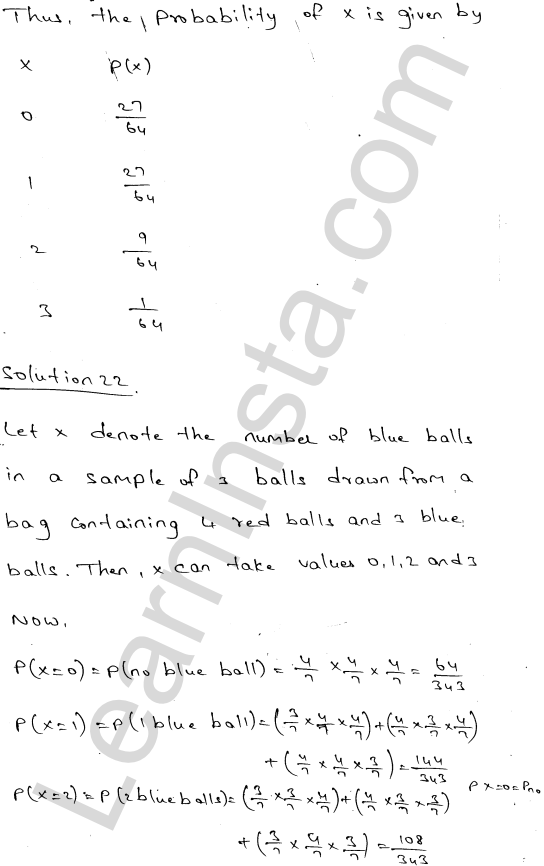 Thus, the, Probability of x is given by
x P(x)
0 27/64
1 27/64
2 9/64
3 1/64
Solution 22.
Let x denote the number of blue balls
in a sample of 3 balls drawn from a
bag containing 4 red balls and 3 blue
balls. Then, x can take values 0,1,2 and 3
Now,
P(x=0) = P(no blue ball) = 4/7 × 4/7 × 4/7 = 64/343
P(x=1) = P(1 blue ball) = (3/7 × 4/7 × 4/7) + (4/7 × 3/7 × 4/7)
+ (4/7 × 4/7 × 3/7) = 144/343
P x=0 = Pno
P(x=2) = P(2 blue balls) = (3/7 × 3/7 × 4/7) + (4/7 × 3/7 × 3/7)
+ (3/7 × 4/7 × 3/7) = 108/343
LearnInsta.com